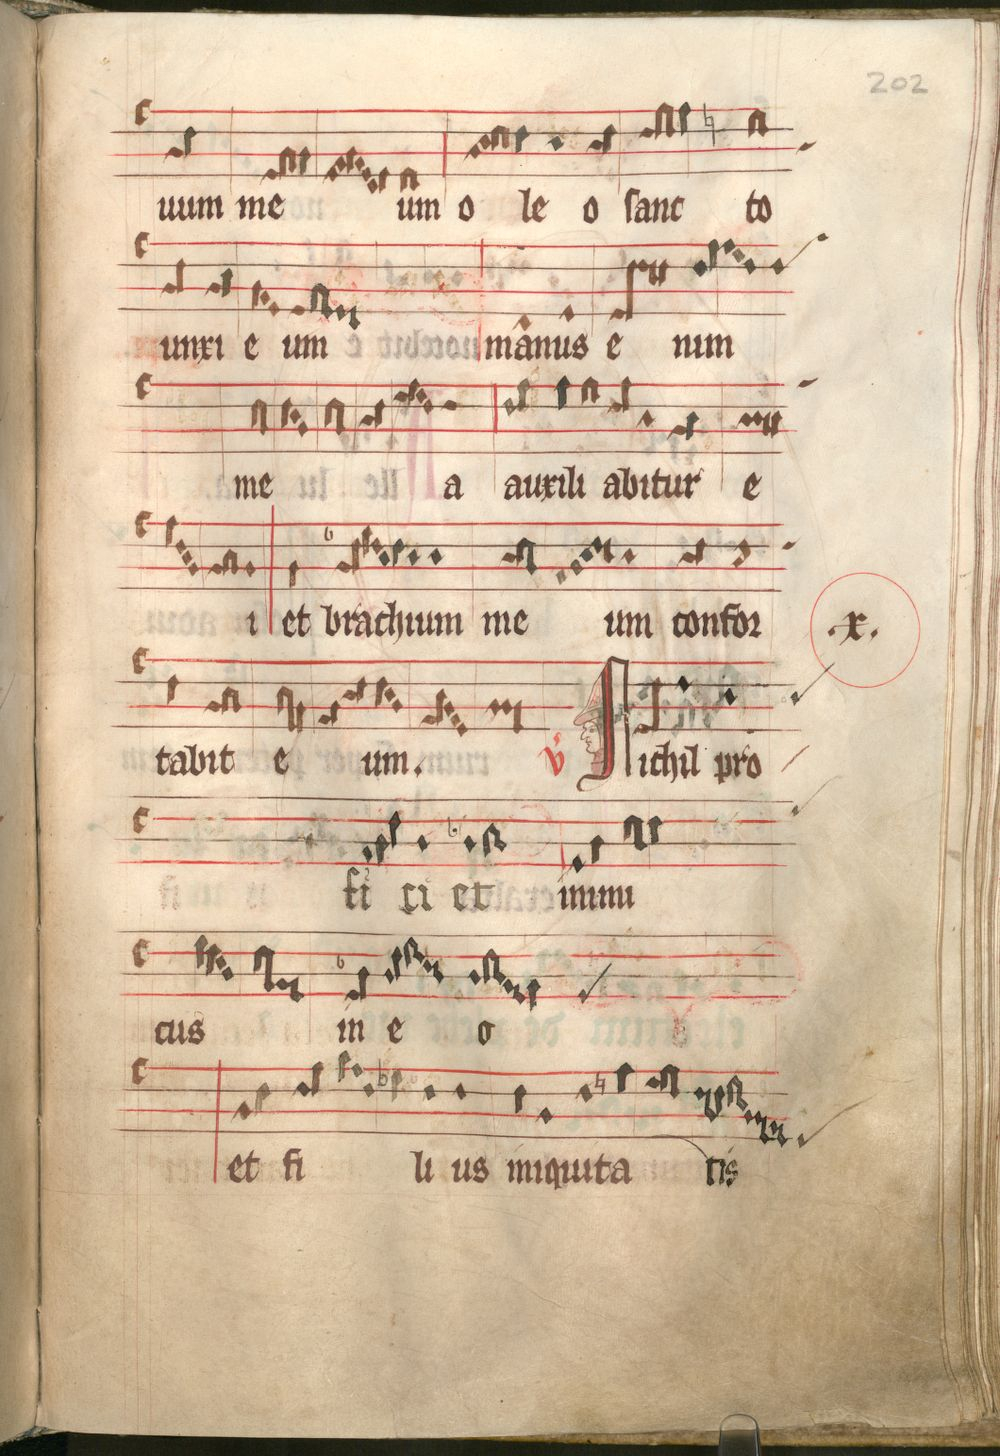 202
uum me um o le o sanc to
unxi e um manus e nim
me a auxili abitur e
i et brachium me um confor
.x.
tabit e um. v Nichil pro
fi ci et inimi
cus in e o
et fi li us iniquita tis